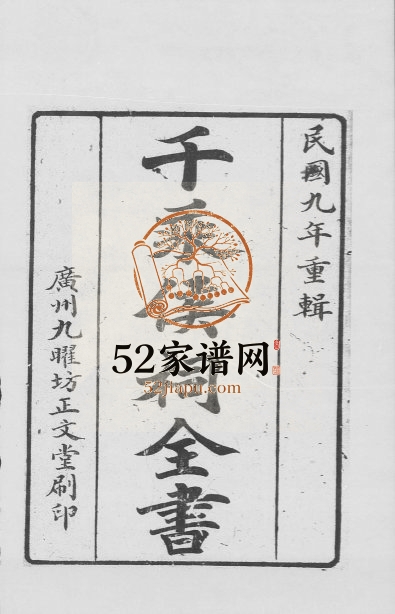 民國九年重輯
千乘侯祠全書
廣州九曜坊正文堂刷印
52家谱网
52jiapu.com